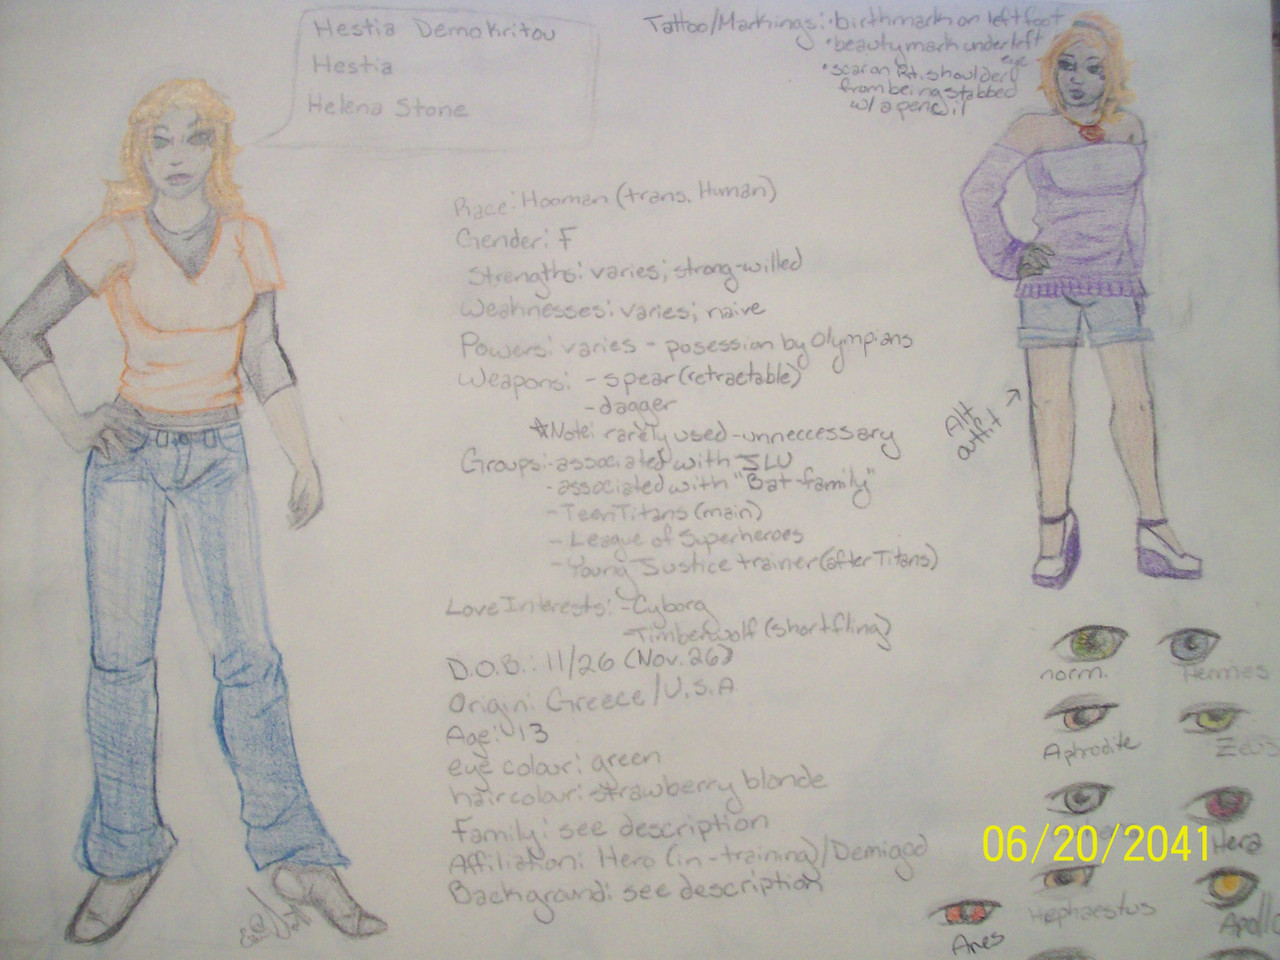 Hestia Demokritou
Hestia
Helena Stone
Tattoo/Markings: • birthmark on left foot
• beautymark under left
eye
• scar on Rt. shoulder
from being stabbed
w/ a pencil
Race: Hooman (trans. Human)
Gender: F
Strengths: varies; strong-willed
Weaknesses: varies; naive
Powers: varies - posession by Olympians
Weapons: - spear (retractable)
- dagger
*Note: rarely used - unneccessary
Groups: - associated with JLU
- associated with "Bat-family"
- Teen Titans (main)
- League of Superheroes
- Young Justice trainer (after Titans)
Love Interests: - Cyborg
- Timberwolf (short fling)
D.O.B.: 11/26 (Nov. 26)
Origin: Greece/U.S.A
Age: 13
eye colour: green
hair colour: strawberry blonde
Family: see description
Affiliation: Hero (in-training)/Demigod
Background: see description
Alt.
outfit
norm.
Hermes
Aphrodite
Zeus
Hera
Hephaestus
Apollo
Ares
06/20/2041